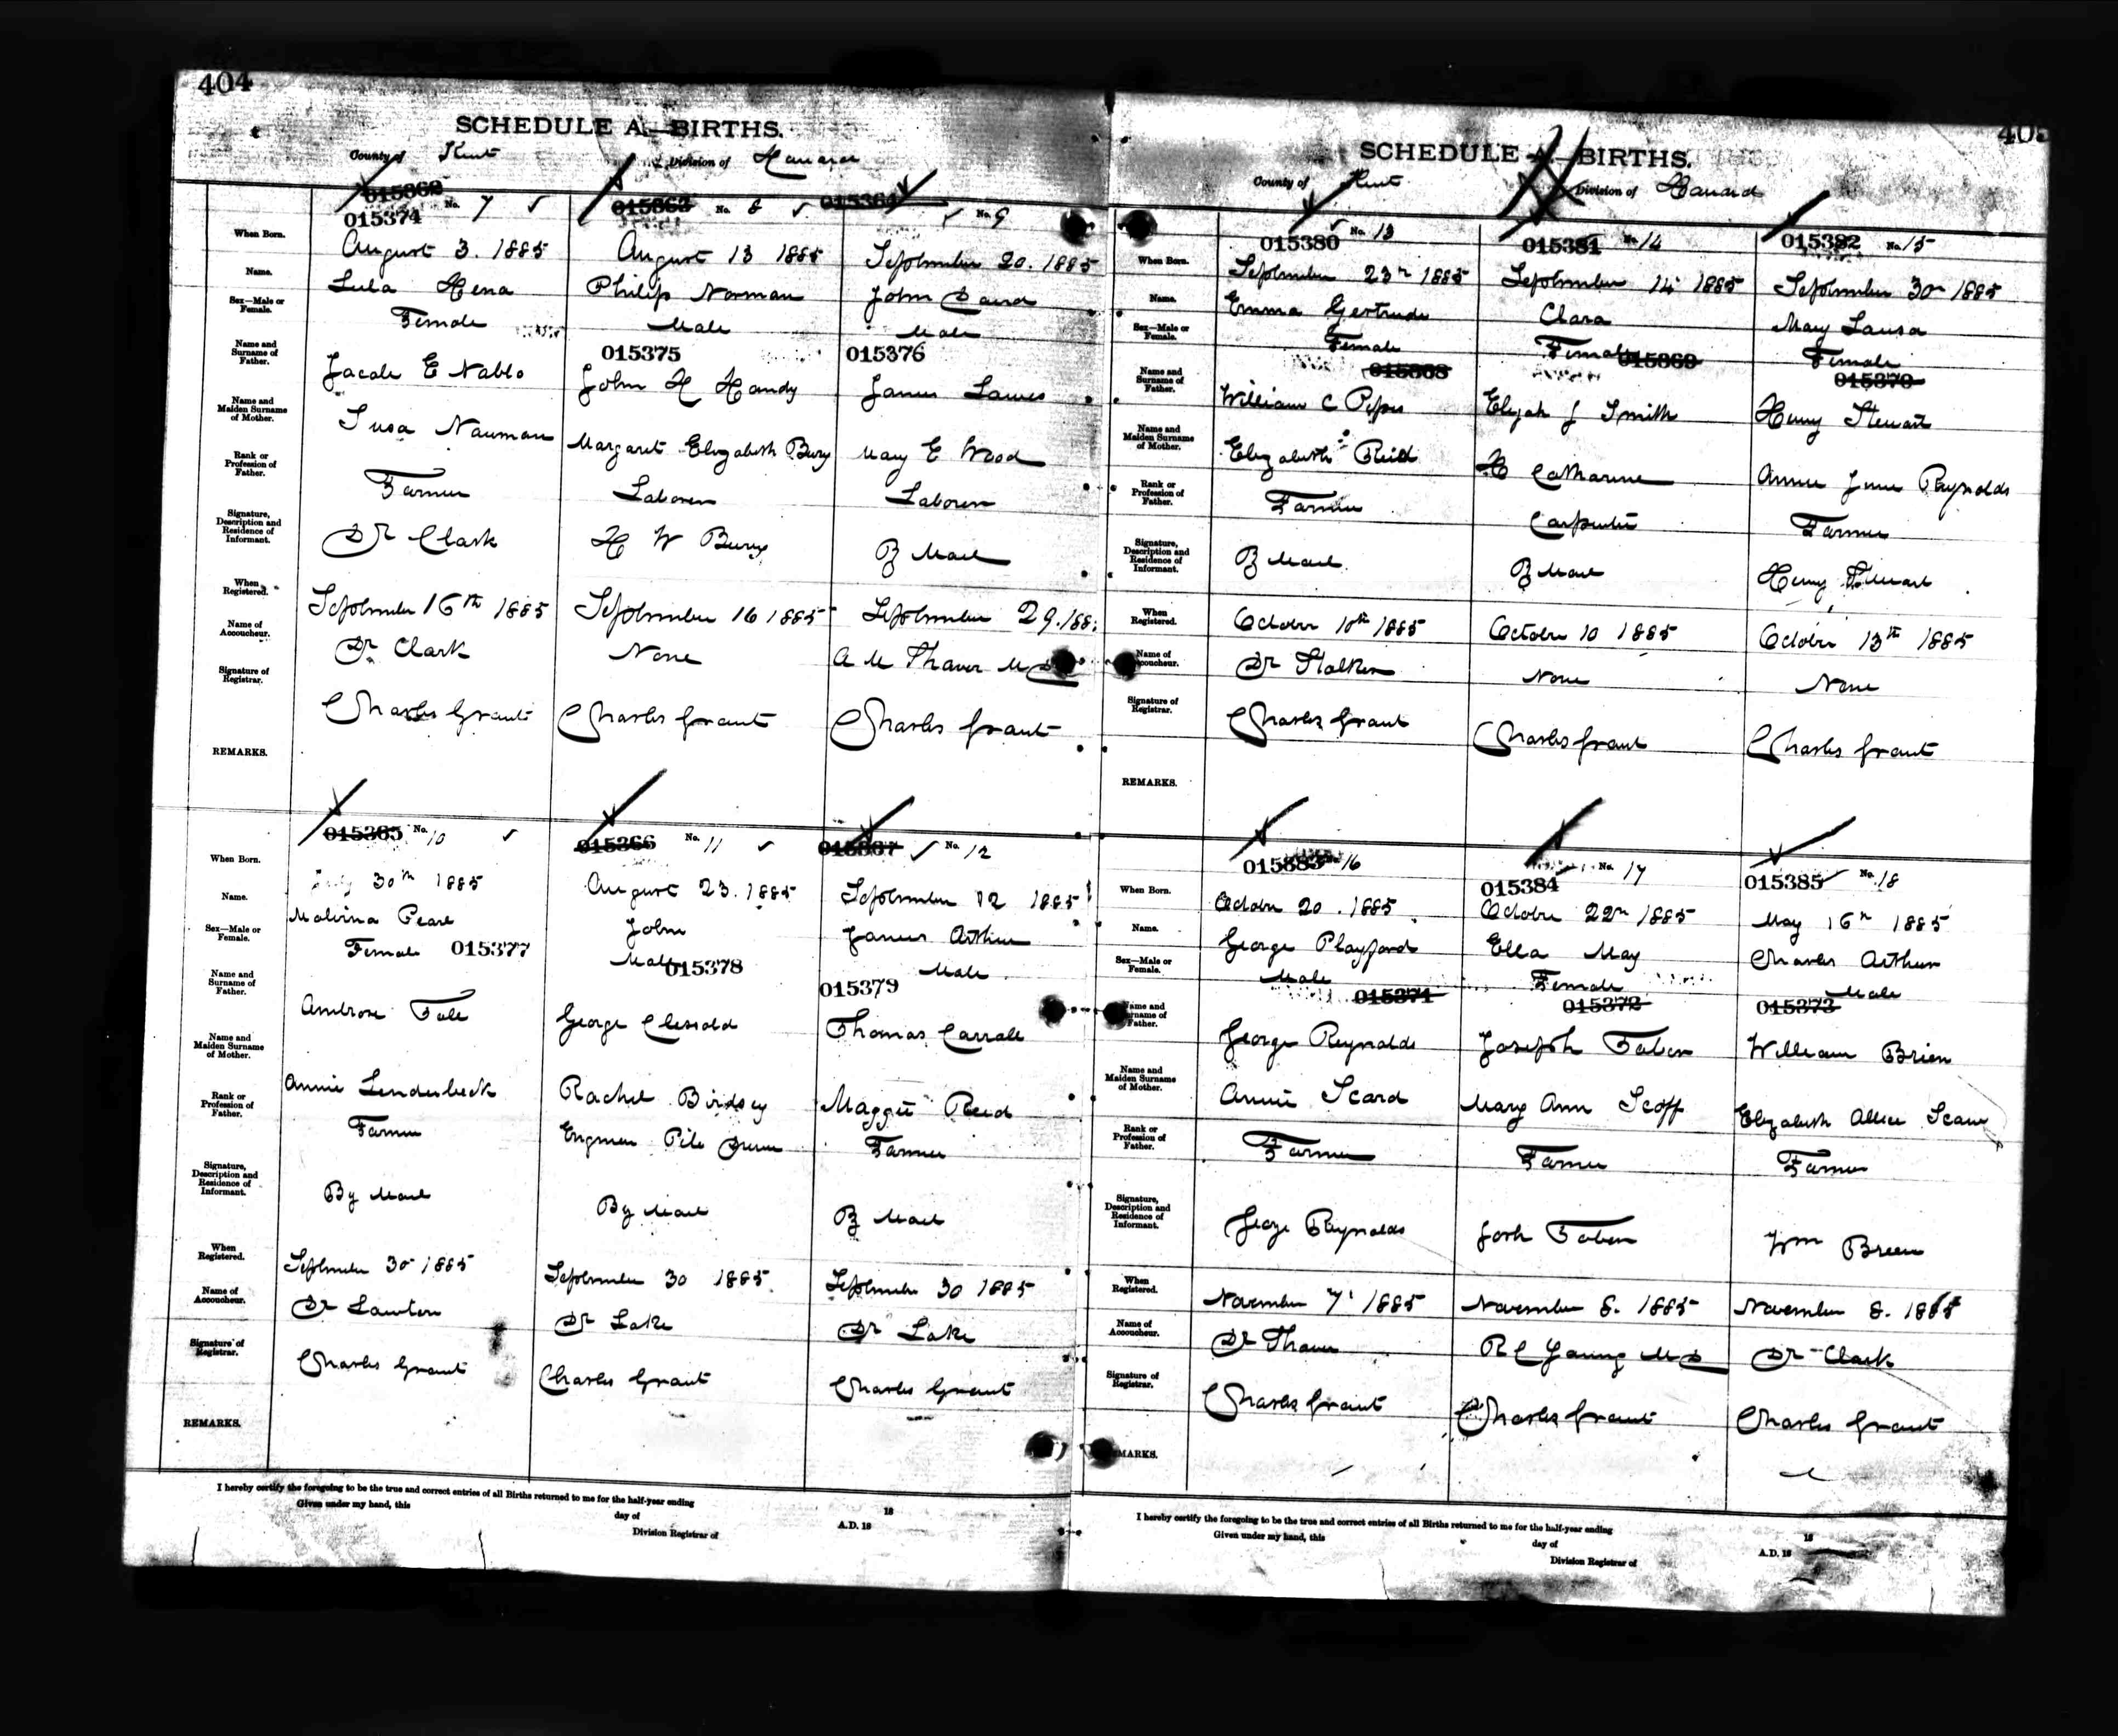 404
SCHEDULE A.—BIRTHS.
County of Kent Division of Harvard
015362 No. 7 015363 No. 8 015364 No. 9
015374
When Born. August 3. 1885 August 13 1885 September 20. 1885
Name. Lula Hena Philip Norman John David
Sex—Male or Female. Female Male Male
015375 015376
Name and Surname of Father. Jacob E Nablo John H Handy James Lawes
Name and Maiden Surname of Mother. Susa Nauman Margaret Elizabeth Bury Mary E Wood
Rank or Profession of Father. Farmer Laborer Laborer
Signature, Description and Residence of Informant. Dr Clark H W Bury B Mail
When Registered. September 16th 1885 September 16 1885 September 29. 188
Name of Accoucheur. Dr Clark None A M Thaver M D
Signature of Registrar. Charles Grant Charles Grant Charles Grant
REMARKS.
015365 No. 10 015366 No. 11 015367 No. 12
When Born. July 30th 1885 August 23. 1885 September 12 1885
Name. Malvina Pearl John James Arthur
Sex—Male or Female. Female 015377 Male 015378 Male
015379
Name and Surname of Father. Ambrose George Thomas Carroll
Name and Maiden Surname of Mother. Annie Lenderbeck Rachel Birdsey Maggie Reid
Rank or Profession of Father. Farmer Engineer Pile Driver Farmer
Signature, Description and Residence of Informant. By Mail By Mail B Mail
When Registered. September 30 1885 September 30 1885 September 30 1885
Name of Accoucheur. Dr Lawton Dr Lake Dr Lake
Signature of Registrar. Charles Grant Charles Grant Charles Grant
REMARKS.
I hereby certify the foregoing to be the true and correct entries of all Births returned to me for the half-year ending 18
Given under my hand, this day of A.D. 18
Division Registrar of
405
SCHEDULE A.—BIRTHS.
County of Kent Division of Harvard
015380 No. 13 015381 No. 14 015382 No. 15
When Born. September 23rd 1885 September 14 1885 September 30 1885
Name. Emma Gertrude Clara Mary Lausa
Sex—Male or Female. Female Female Female
015368 015369 015370
Name and Surname of Father. William C Pipes Elijah J Smith Henry Stewart
Name and Maiden Surname of Mother. Elizabeth Reid H Catharine Annie Jane Reynolds
Rank or Profession of Father. Farmer Carpenter Farmer
Signature, Description and Residence of Informant. B Mail B Mail Henry Stewart
When Registered. October 10th 1885 October 10 1885 October 13th 1885
Name of Accoucheur. Dr Stalker None None
Signature of Registrar. Charles Grant Charles Grant Charles Grant
REMARKS.
015383 No. 16 No. 17 015385 No. 18
015384
When Born. October 20. 1885 October 22nd 1885 May 16th 1885
Name. George Playford Ella May Charles Arthur
Sex—Male or Female. Male Female Male
015371 015372 015373
Name and Surname of Father. George Reynolds Joseph William Brien
Name and Maiden Surname of Mother. Annie Scard Mary Ann Scoff Elizabeth Allice
Rank or Profession of Father. Farmer Farmer Farmer
Signature, Description and Residence of Informant. George Reynolds Wm Breen
When Registered. November 7. 1885 November 8. 1885 November 8. 1885
Name of Accoucheur. Dr Thaver R C Young M D Dr Clark
Signature of Registrar. Charles Grant Charles Grant Charles Grant
REMARKS.
I hereby certify the foregoing to be the true and correct entries of all Births returned to me for the half-year ending 18
Given under my hand, this day of A.D. 18
Division Registrar of